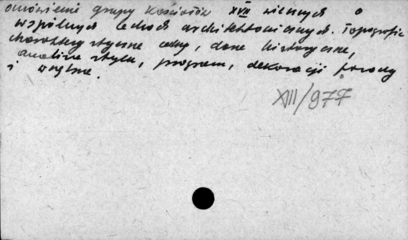 omówienie grupy kościołów XVII wiecznych o
wspólnych cechach architektonicznych. Topografia
charakterystyczne cechy, dane historyczne,
analiza stylu, program, dekoracji fasady
i wnętrz.
XIII/977